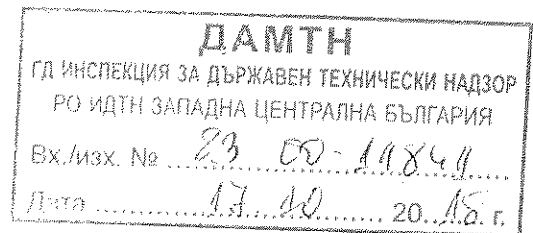 ДАМТН
ГД ИНСПЕКЦИЯ ЗА ДЪРЖАВЕН ТЕХНИЧЕСКИ НАДЗОР
РО ИДТН ЗАПАДНА ЦЕНТРАЛНА БЪЛГАРИЯ
Вх./изх. №
Дата 17.10 20 г.